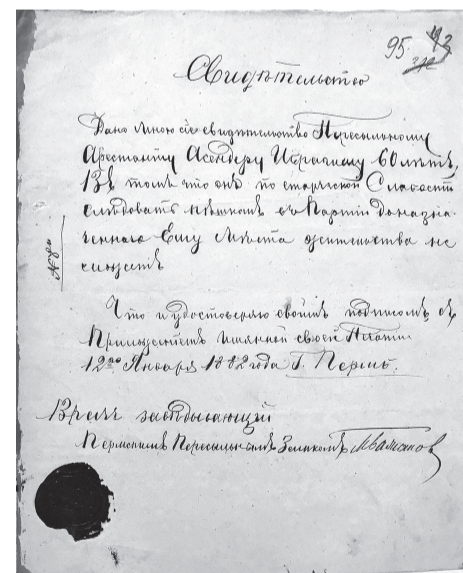 95
Свидѣтельство
Дано мною сіе свидѣтельство Пересыльному
Арестанту Асендеру Ибрагиму 60 лѣтъ,
Въ томъ что онъ по старческой Слабости
слѣдовать пѣшкомъ съ Партіи до назна-
ченнаго Ему мѣста жительства не
можетъ
Что и удостовѣряю своимъ подписомъ съ
Приложеніемъ имянной своей Печати
12го Января 1882 года Г. Пермь.
Врачъ завѣдывающій
Пермскимъ Пересыльнымъ Замкомъ